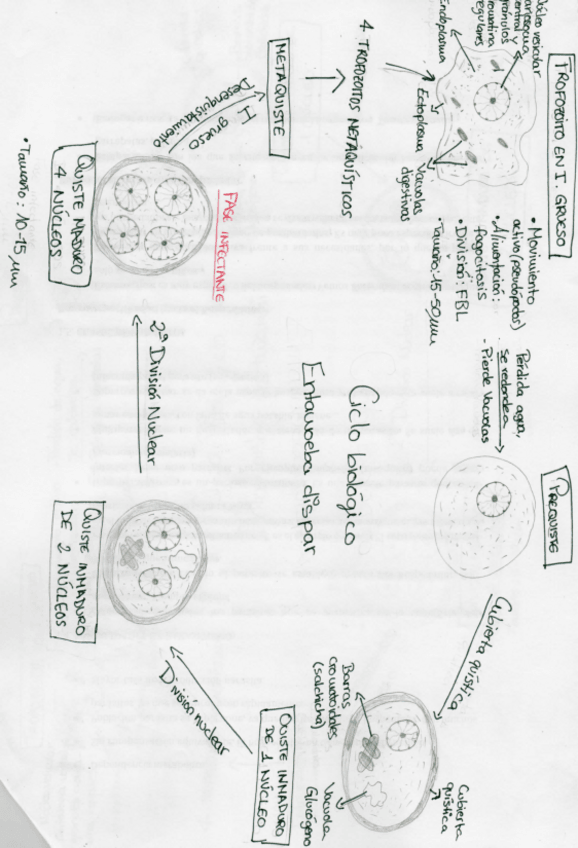 TROFOZOÍTO EN I. GRUESO
Núcleo vesicular
cariosoma
central y
gránulos
cromatina
regulares
Endoplasma
Ectoplasma
Vacuolas
digestivas
• Movimiento
activo (pseudópodos)
• Alimentación:
fagocitosis
• División: FBL
• Tamaño: 15-50 µm
Pérdida agua,
se redondea
- Pierde vacuolas
PREQUISTE
Cubierta quística
Cubierta
quística
Barras
cromatoidales
(salchicha)
Vacuola
Glucógeno
QUISTE INMADURO
DE 1 NÚCLEO
División nuclear
QUISTE INMADURO
DE 2 NÚCLEOS
2ª División Nuclear
FASE INFECTANTE
QUISTE MADURO
4 NÚCLEOS
• Tamaño: 10-15 µm
I. grueso
Desenquistamiento
METAQUISTE
4 TROFOZOITOS METAQUÍSTICOS
Ciclo biológico
Entamoeba dispar